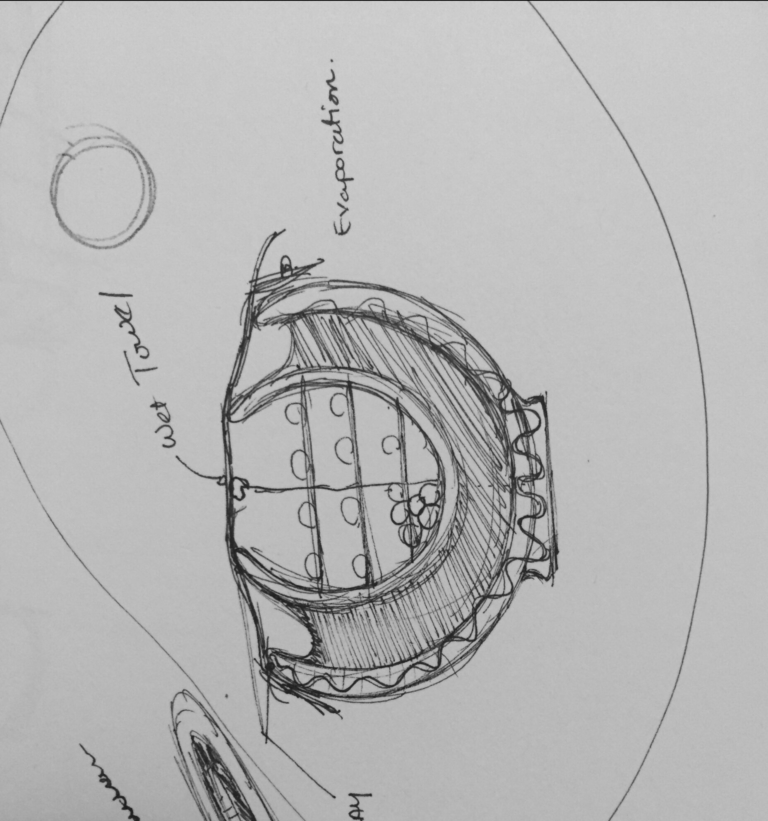 Evaporation.
Wet Towel